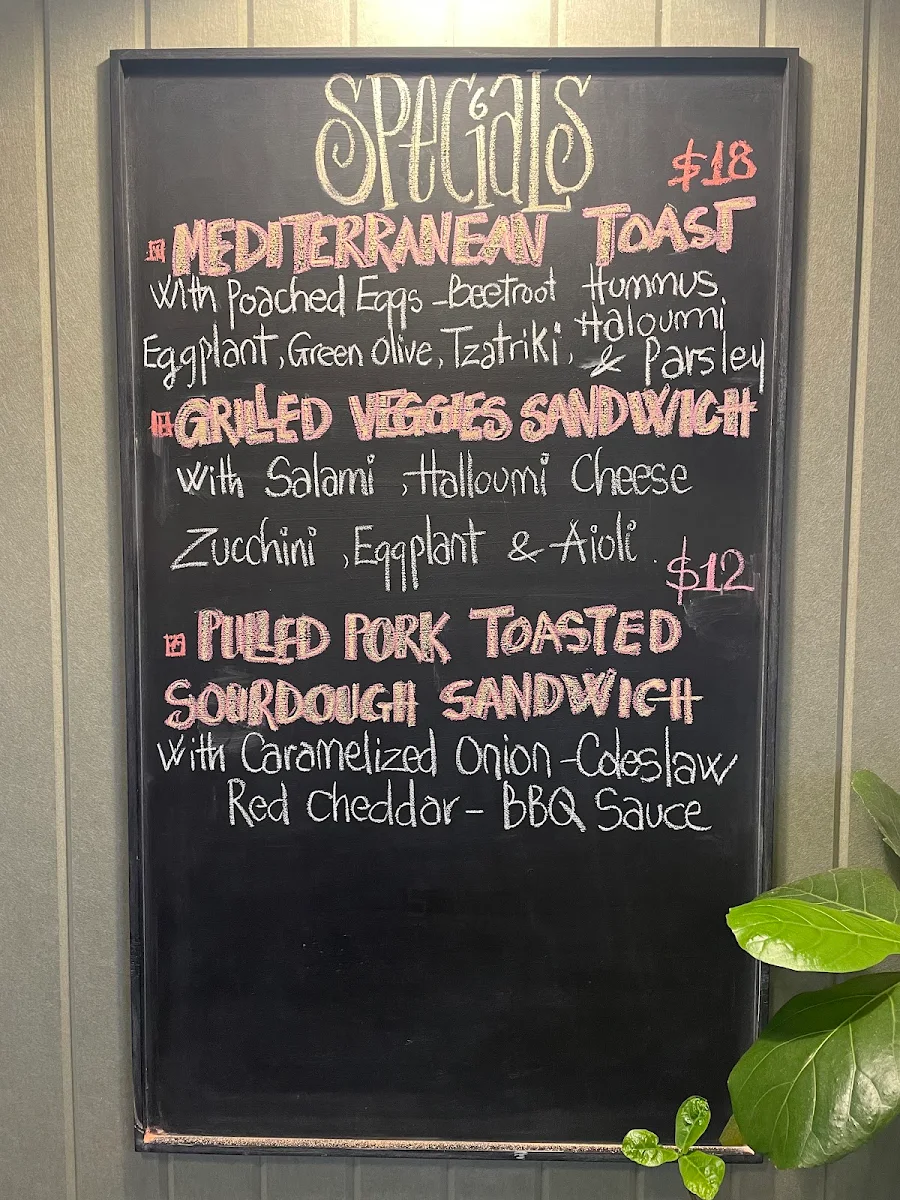 SPeCiaLS
$18
MEDITERRANEAN TOAST
With Poached Eggs - Beetroot Hummus
Eggplant, Green Olive, Tzatriki, Haloumi & Parsley
GRILLED VEGGIES SANDWICH
With Salami, Halloumi Cheese
Zucchini, Eggplant & Aioli.
$12
PULLED PORK TOASTED
SOURDOUGH SANDWICH
With Caramelized Onion - Coleslaw
Red Cheddar - BBQ Sauce